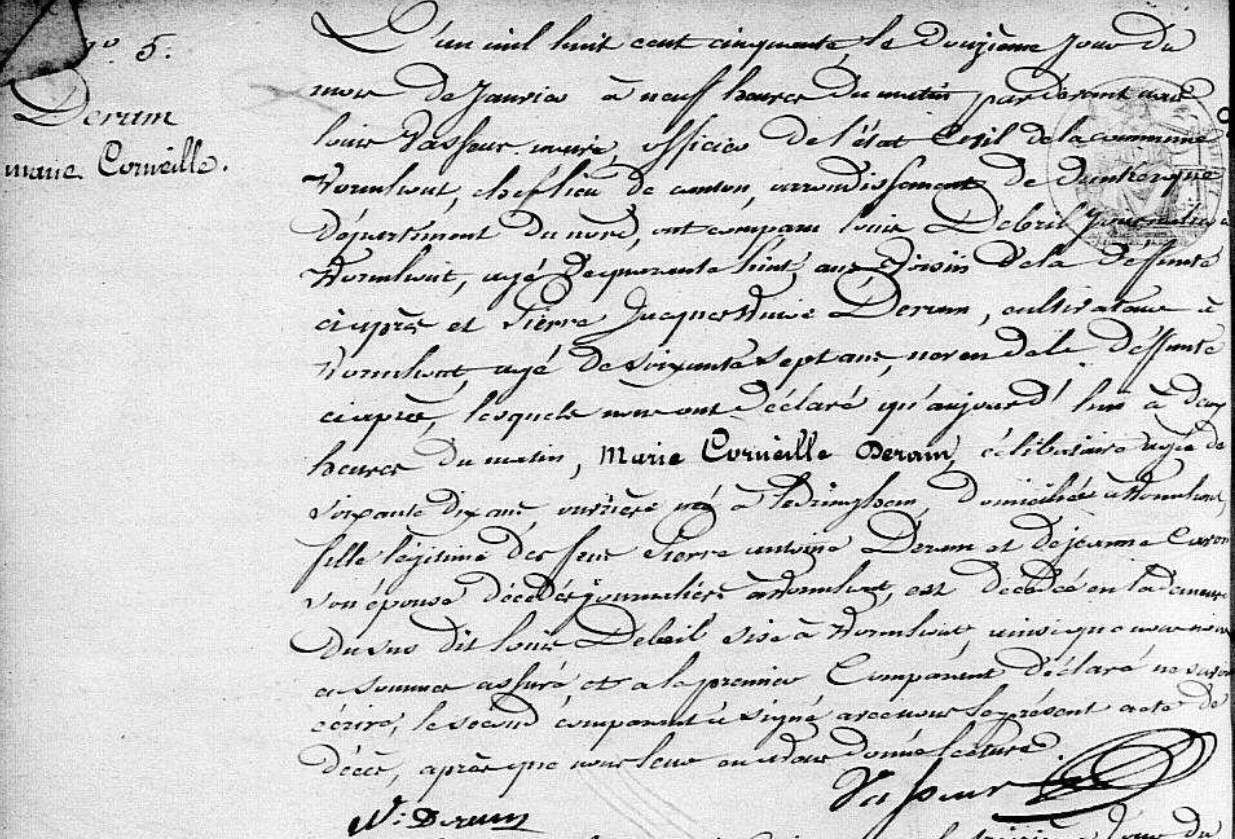 n.° 5.
Deram
marie Corneille.
L'an mil huit cent cinquante, le douzième jour du
mois de Janvier à neuf heures du matin, pardevant nous
louis Vasseur maire, officier de l'état Civil de la commune
Wormhout, chef lieu de canton, arrondissement de dunkerque
département du nord, ont comparu louis Debril Journalier à
Wormhout, agé de quarante huit ans, voisin de la deffunte
ciaprès et Pierre Jacques Deram, cultivateur à
Wormhout, agé de soixante sept ans, neveu de la deffunte
ciaprès, lesquels nous ont déclaré qu'aujourd'hui à deux
heures du matin, Marie Corneille Deram, célibataire agée de
soixante dix ans, ouvrière née à ledringhem, domiciliée à Wormhout,
fille légitime des feus Pierre antoine Deram et de jeanne Caron
son épouse décédés journaliers à Wormhout, est décédée en la demeure
du sus dit louis Debril sise à Wormhout, ainsi que nous nous
en sommes assuré, et a le premier Comparant déclaré ne savoir
écrire, le second comparant a signé avec nous le présent acte de
décès, après que nous leur en avons donné lecture.
Vasseur
Deram